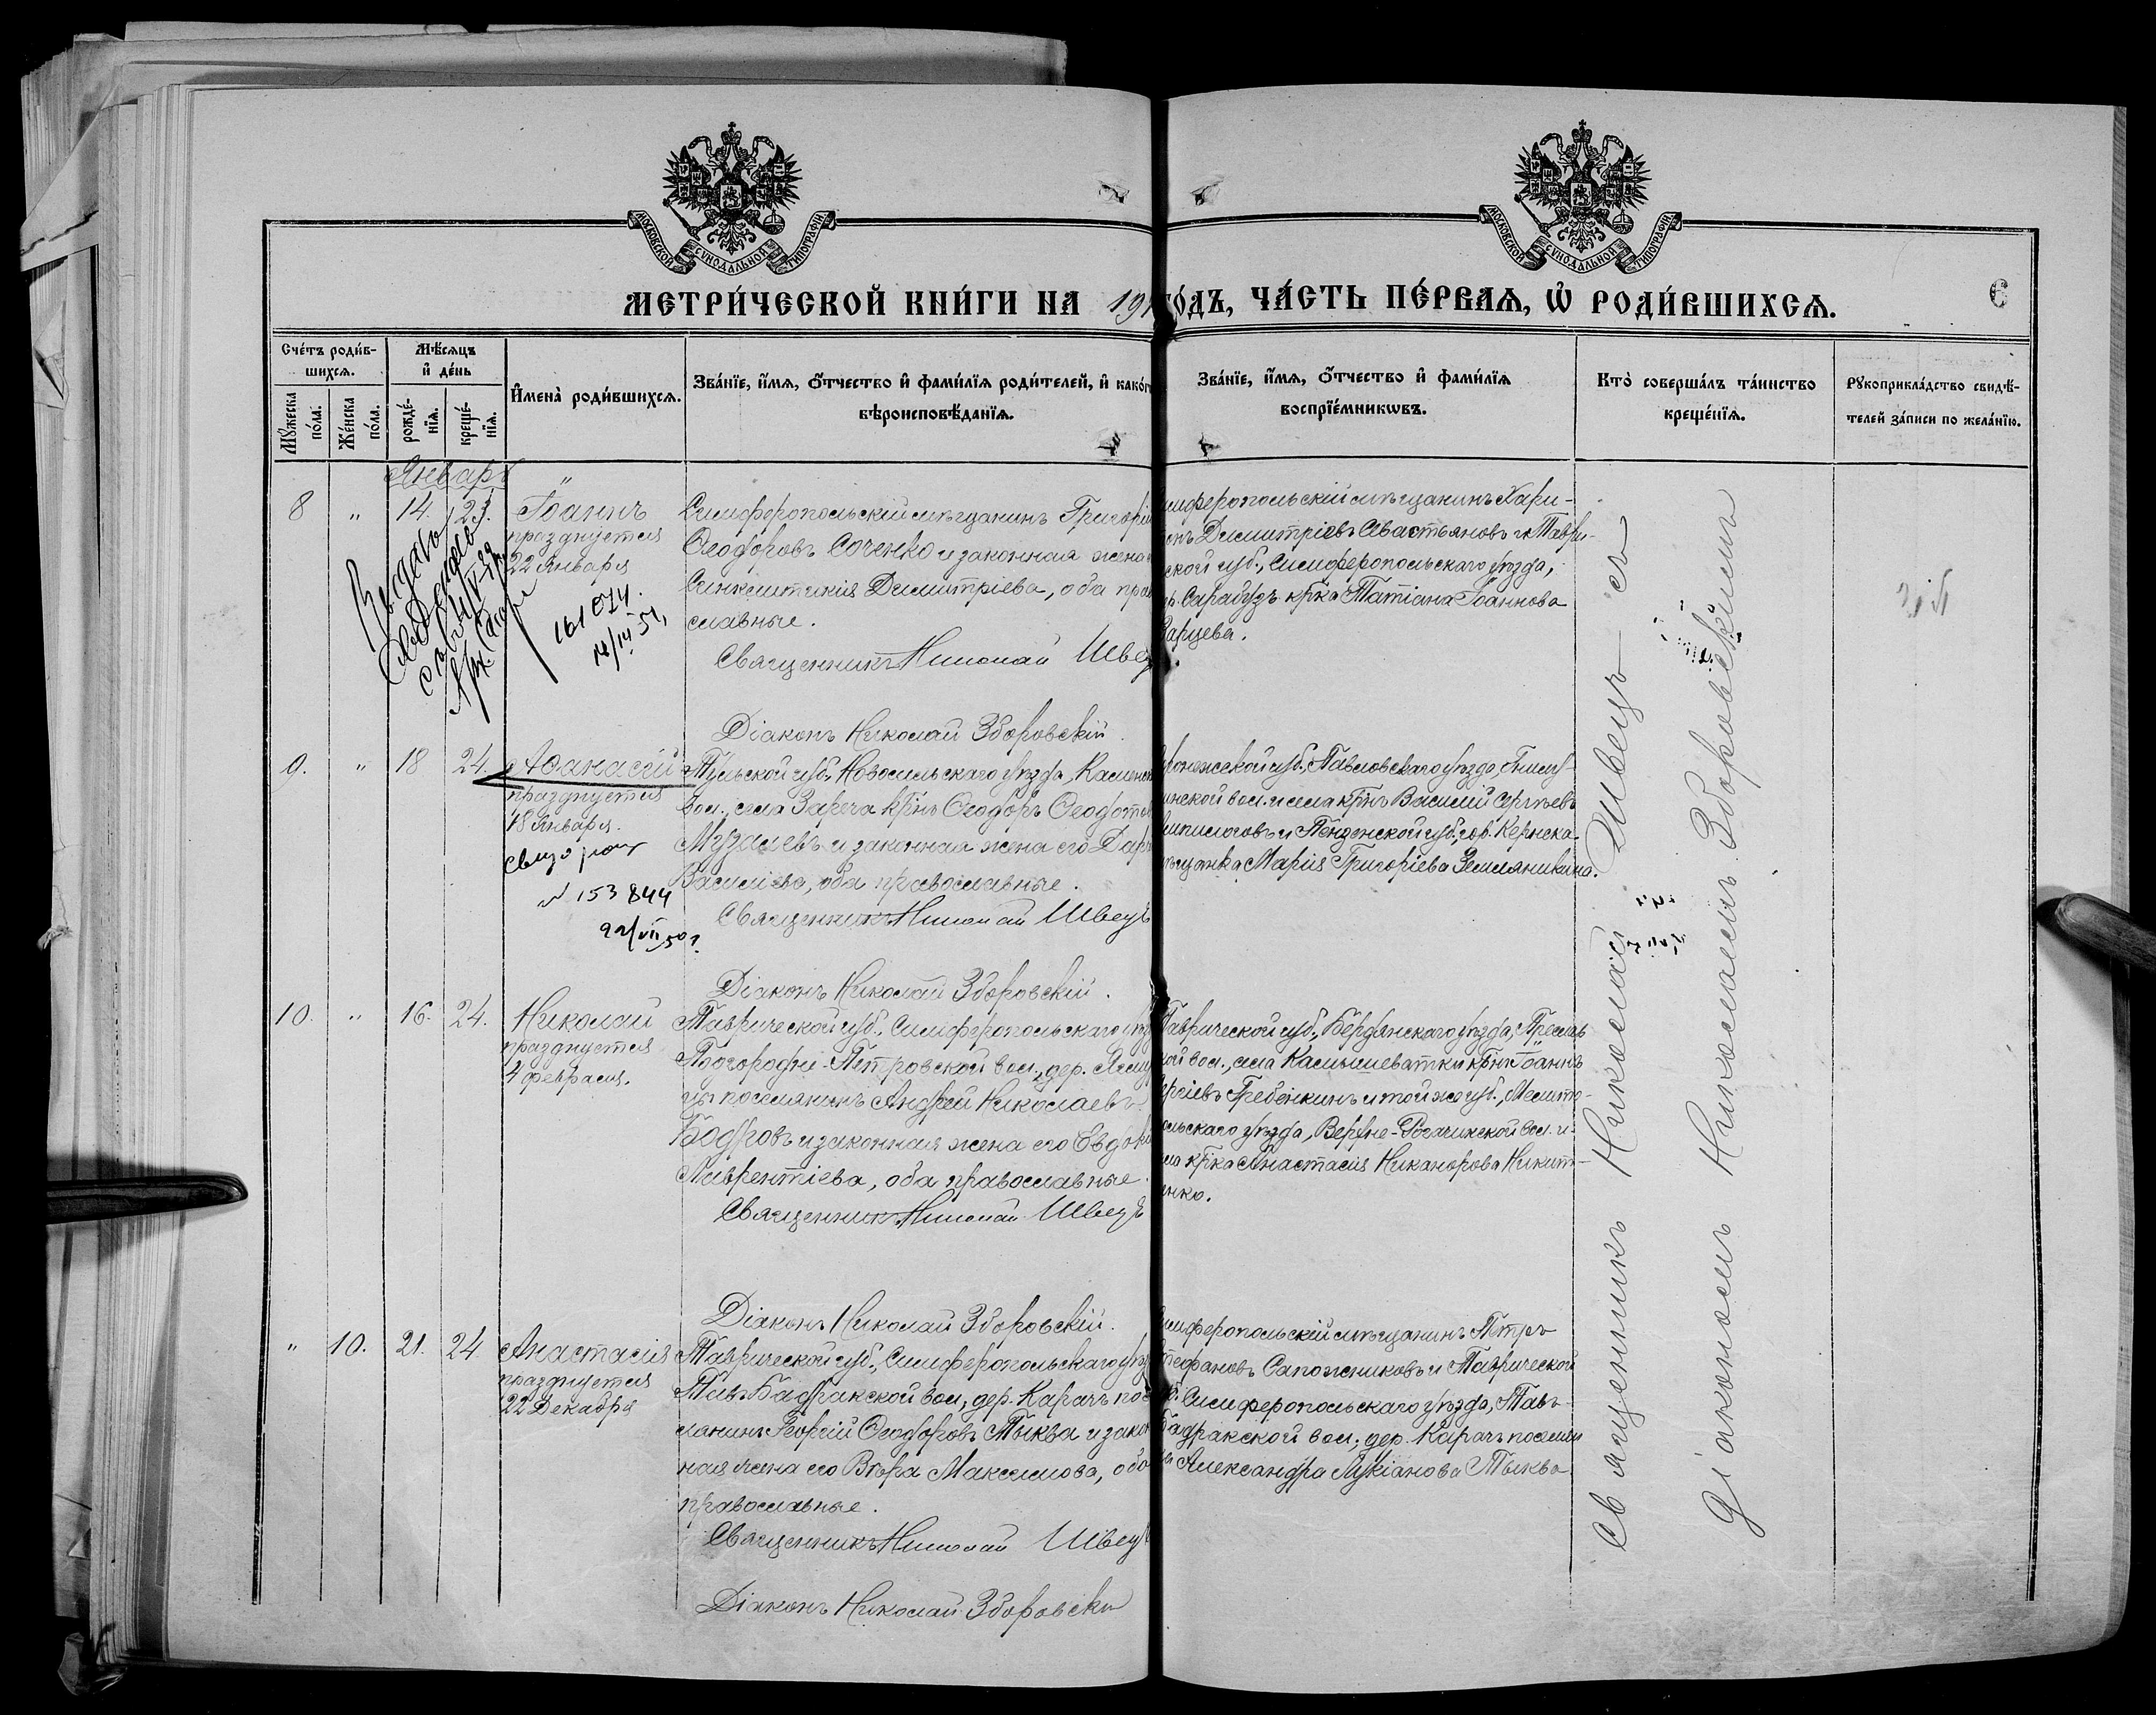 МОСКОВСКОЙ СУНОДАЛЬНОЙ ТИПОГРАФІИ
МОСКОВСКОЙ СУНОДАЛЬНОЙ ТИПОГРАФІИ
МЕТРИ́ЧЕСКОЙ КНИ́ГИ НА 191 ГО́ДЪ, ЧА́СТЬ ПЕ́РВАѦ, Ѽ РОДИ́ВШИХСѦ.
6
Сче́тъ роди́в-
шихсѧ.
Мѣ́сѧцъ
и҆ де́нь
Мꙋ́жеска
по́ла.
Же́нска
по́ла.
рожде́-
нїѧ.
креще́-
нїѧ.
И҆мена̀ роди́вшихсѧ.
Зва́нїе, и҆́мѧ, ѻ҆́тчество и҆ фами́лїѧ роди́телей, и҆ како́г
вѣроисповѣ́данїѧ.
Зва́нїе, и҆́мѧ, ѻ҆́тчество и҆ фами́лїѧ
воспрїе́мникѡвъ.
Кто̀ соверша́лъ та́инство
креще́нїѧ.
Рꙋкоприкла́дство свидѣ́-
телей за́писи по жела́нїю.
Январь
8 " 14. 23. Іоаннъ
празднуется
22 Января
Выдано
161074.
Симферопольскій мѣщанинъ Григорій
Ѳеодоровъ Соченко и законная жена
Синклитикія Димитріева, оба пра
славные.
Священникъ Николай Швец
Діаконъ Николай Зборовскій.
имферопольскій мѣщанинъ Хари-
онъ Димитріевъ Севастьяновъ и Таври-
ской губ., Симферопольскаго уѣзда,
Сарабузъ кр҃ка Татіана Іоаннова
арцева.
9. " 18 24. Аѳанасій
празднуется
18 Января.
№ 153844
22/VII 50 г.
Тульской губ., Новосильскаго уѣзда, Каменск
вол., села Зареча кр҃нъ Ѳеодоръ Ѳеодотов
Музалевъ и законная жена его Дар
Василіева, оба православные.
Священникъ Николай Швецъ
Діаконъ Николай Зборовскій.
ронежской губ., Павловскаго уѣзда, Гнилу-
инской вол. и села кр҃нъ Василій Сергѣевъ
и Пензенской губ., гор. Керенска
ѣщанка Марія Григоріева Земляникина.
10. " 16. 24. Николай
празднуется
4 февраля.
Таврической губ., Симферопольскаго уѣзд
Подгородне-Петровской вол., дер.
поселянинъ Андрей Николаевъ
Бодровъ и законная жена его Евдокі
Лаврентіева, оба православные.
Священникъ Николай Швецъ
Діаконъ Николай Зборовскій.
Таврической губ., Бердянскаго уѣзда, Преслав
кой вол., села Камышеватки кр҃нъ Іоаннъ
ргіевъ Гребенкинъ и той же губ., Мелито-
ольскаго уѣзда, Верхне-Рогачикской вол. и
ла кр҃ка Анастасія Никанорова Никит-
енко.
" 10. 21. 24. Анастасія
празднуется
22 Декабря
Таврической губ., Симферопольскаго уѣз
Тавъ-Бадракской вол., дер. Карачъ пос
лянинъ Георгій Ѳеодоровъ Тыква и закон
ная жена его Вѣра Максимова, оба
православные.
Священникъ Николай Швец
Діаконъ Николай Зборовскі
имферопольскій мѣщанинъ Петръ
тефановъ Сапожниковъ и Таврической
б. Симферопольскаго уѣзда, Тавъ-
Бадракской вол., дер. Карачъ поселян
ка Александра Лукіанова Тыква.
Священникъ Николай Швецъ съ
діакономъ Николаемъ Зборовскимъ